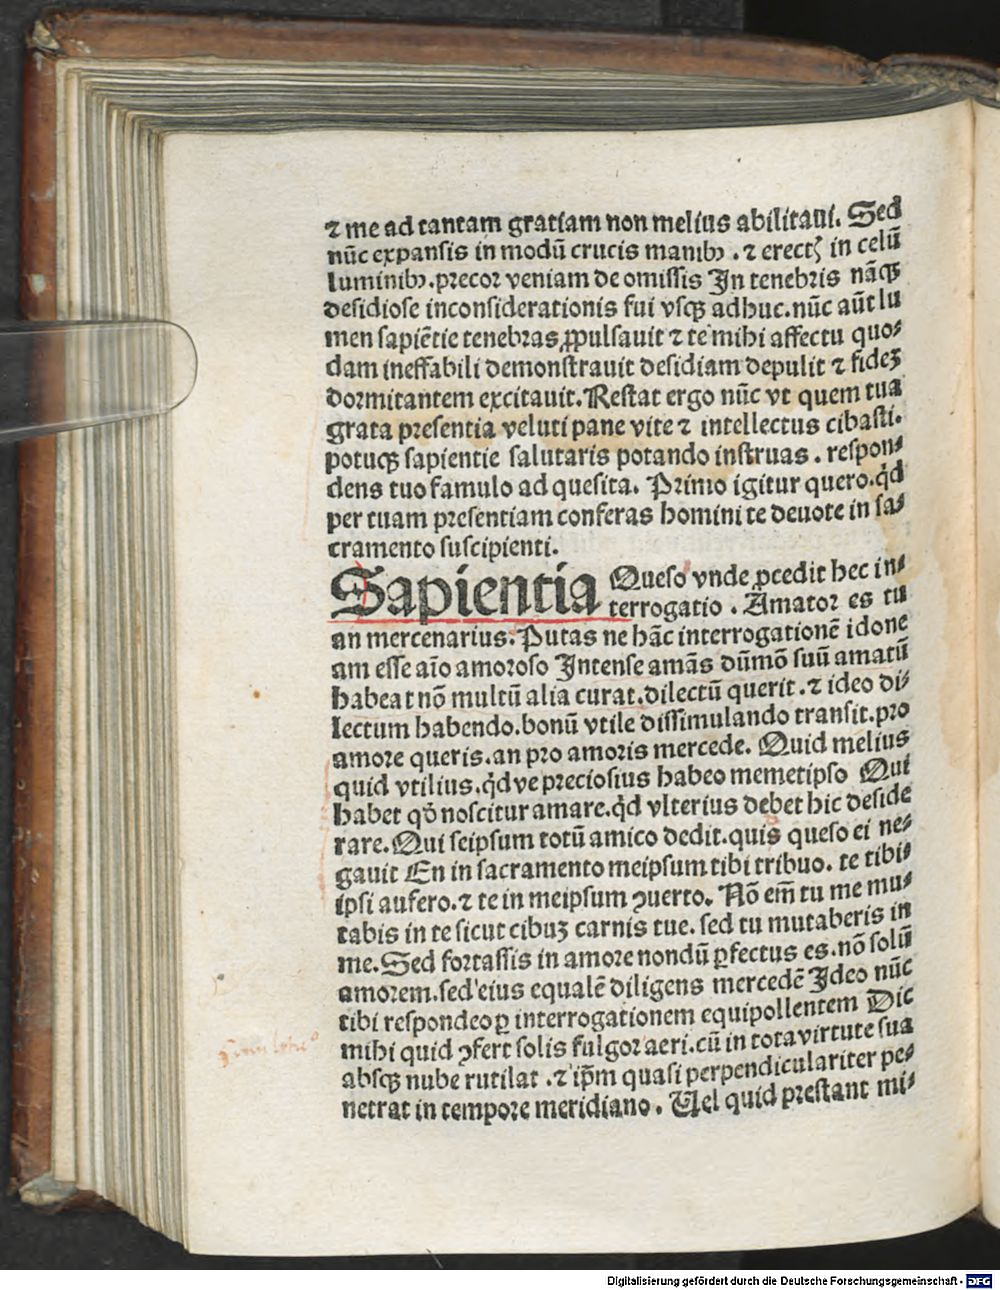 ⁊ me ad tantam gratiam non melius abilitaui. Sed
nūc expansis in modū crucis manibꝰ . ⁊ erectꝭ in celū
luminibꝰ. precor veniam de omissis In tenebris nāqꝫ
desidiose inconsiderationis fui vsqꝫ adhuc. nūc aūt lu
men sapiētie tenebras ꝓpulsauit ⁊ te mihi affectu quo⸗
dam ineffabili demonstrauit desidiam depulit ⁊ fideꝫ
dormitantem excitauit. Restat ergo nūc vt quem tua
grata presentia veluti pane vite ⁊ intellectus cibasti.
potuqꝫ sapientie salutaris potando instruas . respon⸗
dens tuo famulo ad quesita. Primo igitur quero. qd̄
per tuam presentiam conferas homini te deuote in sa⸗
cramento suscipienti.
Sapientia Queso vnde ꝓcedit hec in⸗
terrogatio . Amator es tu
an mercenarius. Putas ne hāc interrogationē idone
am esse aīo amoroso Intense amās dūmō suū amatū
habeat nō multū alia curat. dilectū querit . ⁊ ideo di⸗
lectum habendo. bonū vtile dissimulando transit. pro
amore queris. an pro amoris mercede. Quid melius
quid vtilius. qd̄ ve preciosius habeo memetipso Qui
habet qō noscitur amare. qd̄ vlterius debet hic deside
rare. Qui seipsum totū amico dedit. quis queso ei ne⸗
gauit En in sacramento meipsum tibi tribuo. te tibi⸗
ipsi aufero. ⁊ te in meipsum ꝯuerto. Nō em̄ tu me mu⸗
tabis in te sicut cibuꝫ carnis tue. sed tu mutaberis in
me. Sed fortassis in amore nondū ꝑfectus es. nō solū
amorem. sed eius equalē diligens mercedē Ideo nūc
tibi respondeo ꝑ interrogationem equipollentem Dic
mihi quid ꝯfert solis fulgor aeri. cū in tota virtute sua
absqꝫ nube rutilat . ⁊ ip̄m quasi perpendiculariter pe⸗
netrat in tempore meridiano. Uel quid prestant mi⸗
Digitalisierung gefördert durch die Deutsche Forschungsgemeinschaft - DFG